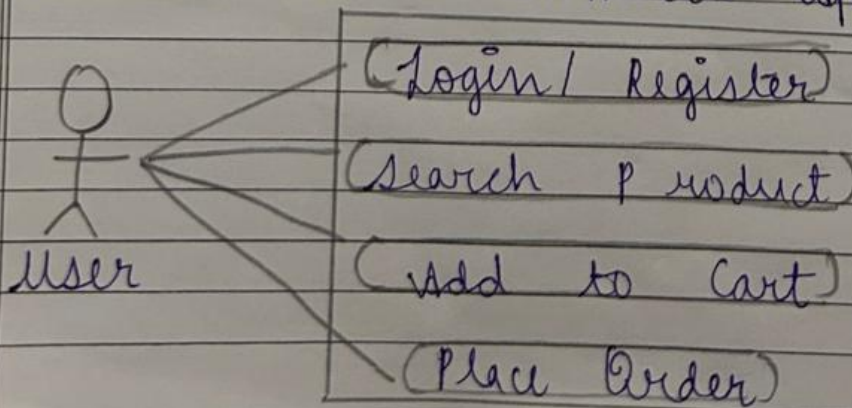 (Login / Register)
(Search Product)
User
(Add to Cart)
(Place Order)